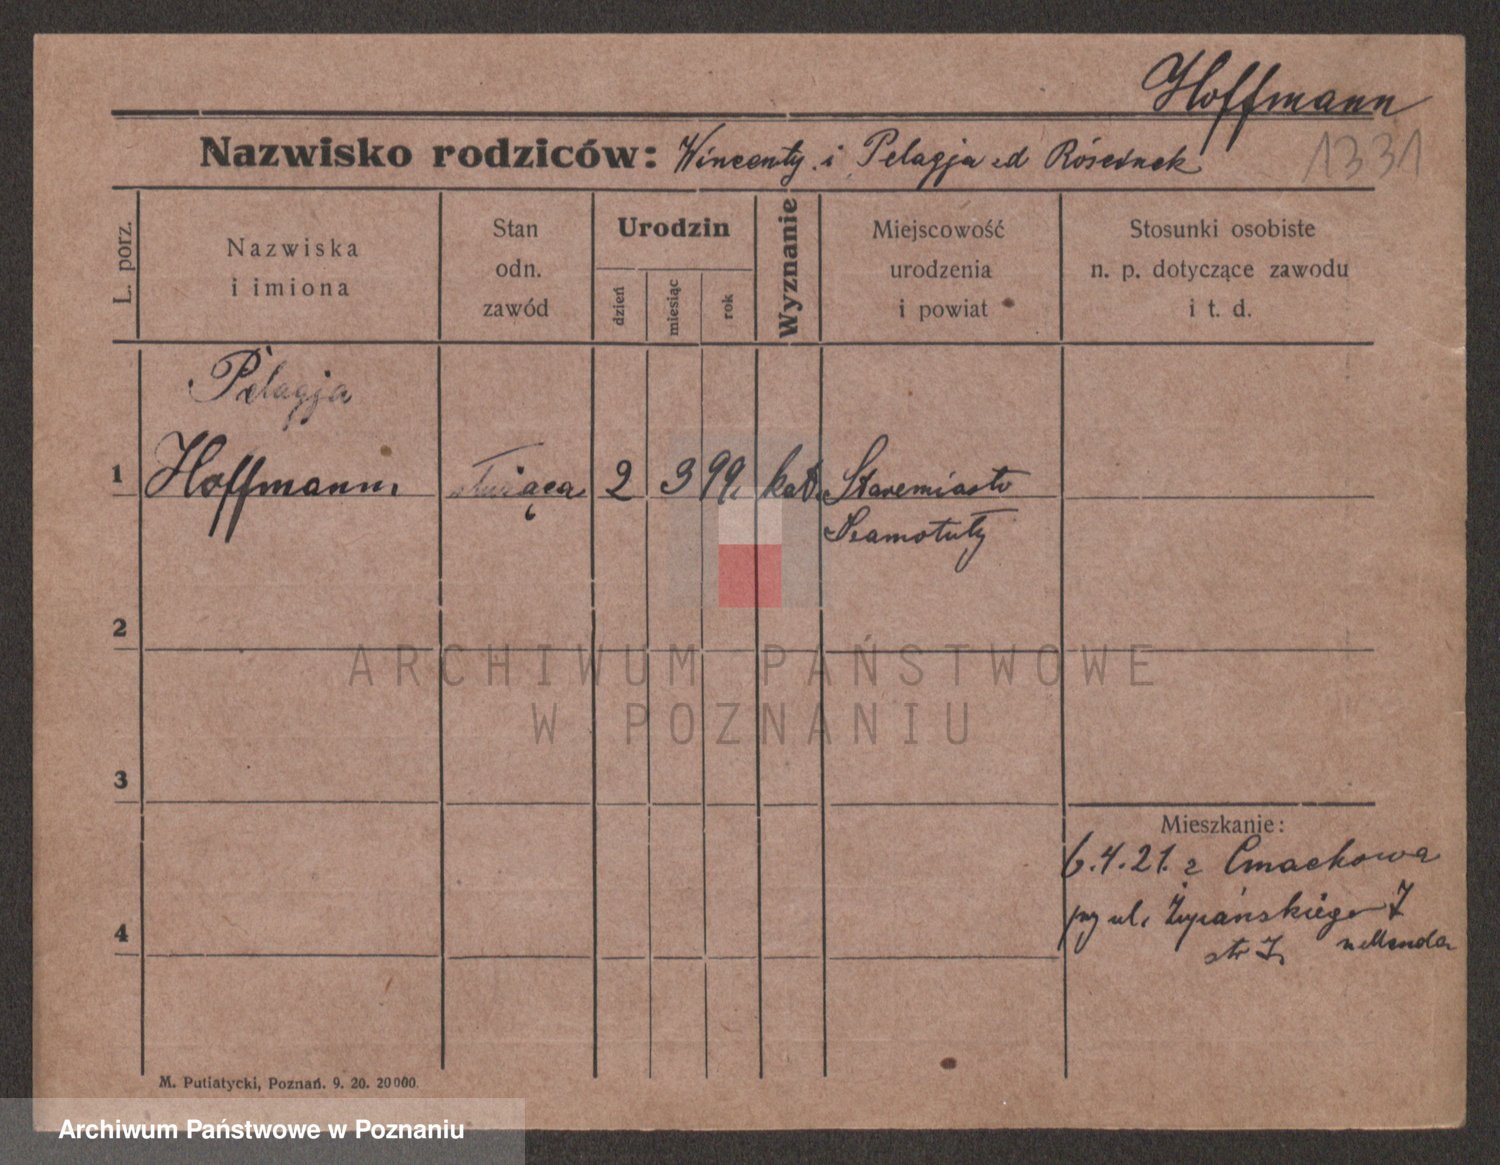 Hoffmann
1331
Nazwisko rodziców: Wincenty i Pelagja
L. porz.
Nazwiska
i imiona
Stan
odn.
zawód
Urodzin
dzień
miesiąc
rok
Wyznanie
Miejscowość
urodzenia
i powiat
Stosunki osobiste
n. p. dotyczące zawodu
i t. d.
Pelagja
1 Hoffmann służąca 2 3 99 kat. Staremiasto
Szamotuły
2
ARCHIWUM PAŃSTWOWE
W POZNANIU
3
Mieszkanie:
6.4.21. z Ćmachowa
przy ul. Żupańskiego
4
M. Putiatycki, Poznań. 9. 20. 20000.
Archiwum Państwowe w Poznaniu